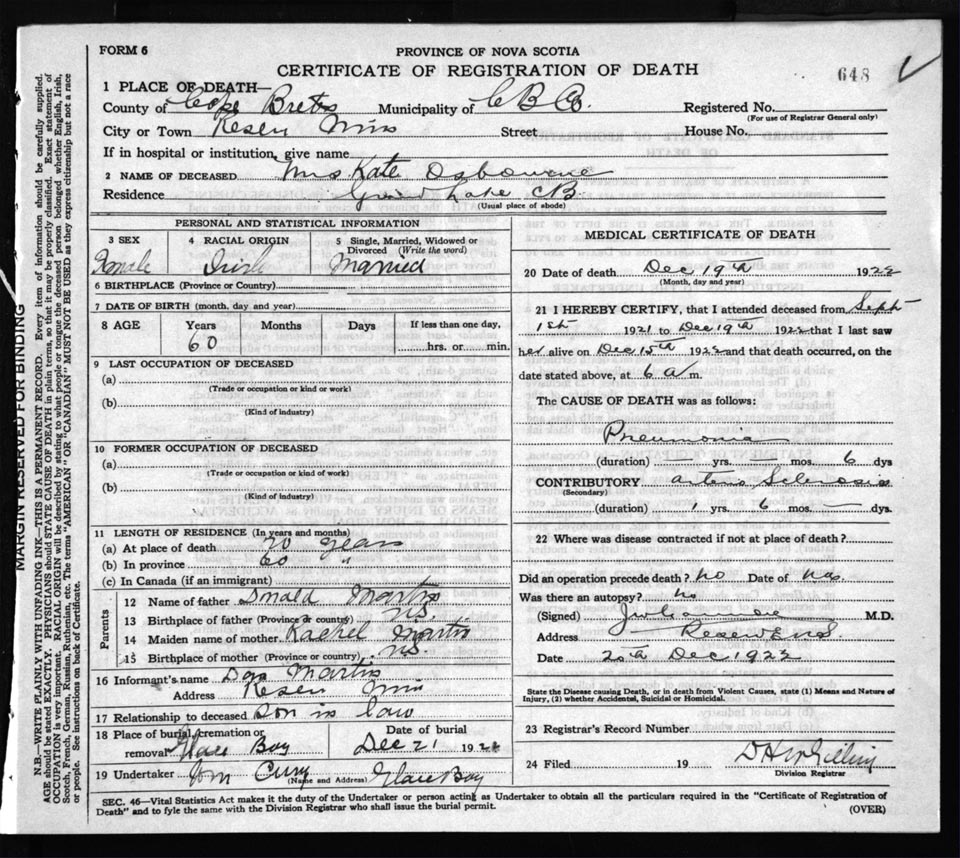 FORM 6
PROVINCE OF NOVA SCOTIA
CERTIFICATE OF REGISTRATION OF DEATH
648
1 PLACE OF DEATH—
County of Cape Breton Municipality of C B Co. Registered No.
(For use of Registrar General only)
City or Town Reser Mins Street House No.
If in hospital or institution, give name
2 NAME OF DECEASED Mrs Kate Osbourne
Residence Grand Lake CB
(Usual place of abode)
PERSONAL AND STATISTICAL INFORMATION
3 SEX 4 RACIAL ORIGIN 5 Single, Married, Widowed or Divorced (Write the word)
Female Irish Married
6 BIRTHPLACE (Province or Country)
7 DATE OF BIRTH (month, day and year)
8 AGE Years Months Days If less than one day,
60 hrs. or min.
9 LAST OCCUPATION OF DECEASED
(a)
(Trade or occupation or kind or work)
(b)
(Kind of industry)
10 FORMER OCCUPATION OF DECEASED
(a)
(Trade or occupation or kind of work)
(b)
(Kind of industry)
11 LENGTH OF RESIDENCE (In years and months)
(a) At place of death 20 years
(b) In province 60 "
(c) In Canada (if an immigrant)
Parents
12 Name of father Donald Martin
13 Birthplace of father (Province or country) NS.
14 Maiden name of mother Rachel Martin
15 Birthplace of mother (Province or country) NS.
16 Informant's name Dan Martin
Address Reser Mins
17 Relationship to deceased Son in law
18 Place of burial, cremation or removal Glace Bay Date of burial Dec 21 1922
19 Undertaker Wm Curry (Name and Address) Glace Bay
MEDICAL CERTIFICATE OF DEATH
20 Date of death Dec 19th 1922
(Month, day and year)
21 I HEREBY CERTIFY, that I attended deceased from Sept
1st 1921 to Dec 19th 1922 that I last saw
her alive on Dec 15th 1922 and that death occurred, on the
date stated above, at 6 a m.
The CAUSE OF DEATH was as follows:
Pneumonia
(duration) — yrs. — mos. 6 dys
CONTRIBUTORY arterio Sclerosis
(Secondary)
(duration) 1 yrs 6 mos. — dys.
22 Where was disease contracted if not at place of death?
Did an operation precede death? no Date of
Was there an autopsy? no
(Signed) M.D.
Address Reser Mins
Date 20th Dec 1922
State the Disease causing Death, or in death from Violent Causes, state (1) Means and Nature of
Injury, (2) whether Accidental, Suicidal or Homicidal.
23 Registrar's Record Number
24 Filed 19
Division Registrar
SEC. 46—Vital Statistics Act makes it the duty of the Undertaker or person acting as Undertaker to obtain all the particulars required in the "Certificate of Registration of
Death" and to fyle the same with the Division Registrar who shall issue the burial permit. (OVER)
MARGIN RESERVED FOR BINDING
N.B.—WRITE PLAINLY WITH UNFADING INK—THIS IS A PERMANENT RECORD. Every item of information should be carefully supplied.
AGE should be stated EXACTLY. PHYSICIANS should STATE CAUSE OF DEATH in plain terms, so that it may be properly classified. Exact statement of
OCCUPATION is very important. RACIAL ORIGIN will be described by stating to what people or tongue the deceased person belonged, whether English, Irish,
Scotch, French, German, Russian, Ruthenian, etc. The terms "AMERICAN" OR "CANADIAN" MUST NOT BE USED as they express citizenship but not a race
or people. See instructions on back of Certificate.